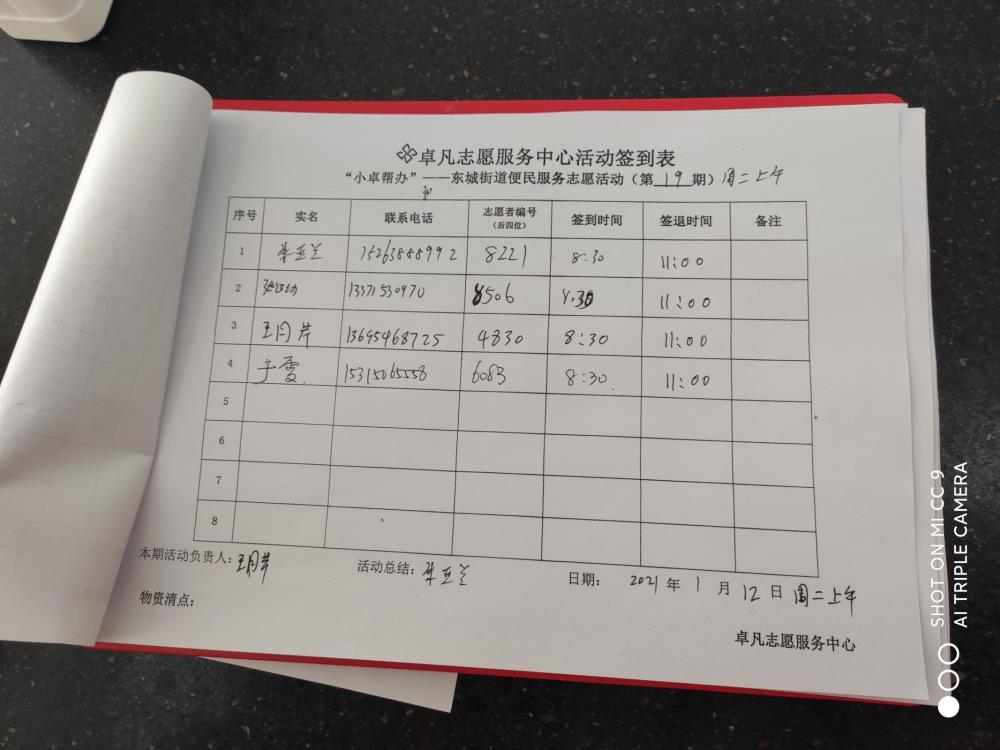 卓凡志愿服务中心活动签到表
“小卓帮办”——东城街道便民服务志愿活动（第19期）周二上午
序号 实名 联系电话 志愿者编号（后四位） 签到时间 签退时间 备注
1 15263888992 8221 8:30 11:00
2 13371530970 8506 11:00
3 王月芹 13695468725 4830 8:30 11:00
4 于雯 15315065558 6083 8:30 11:00
5
6
7
8
本期活动负责人：王月芹 活动总结： 日期： 2021年1月12日周二上午
物资清点：
卓凡志愿服务中心
SHOT ON MI CC 9
AI TRIPLE CAMERA